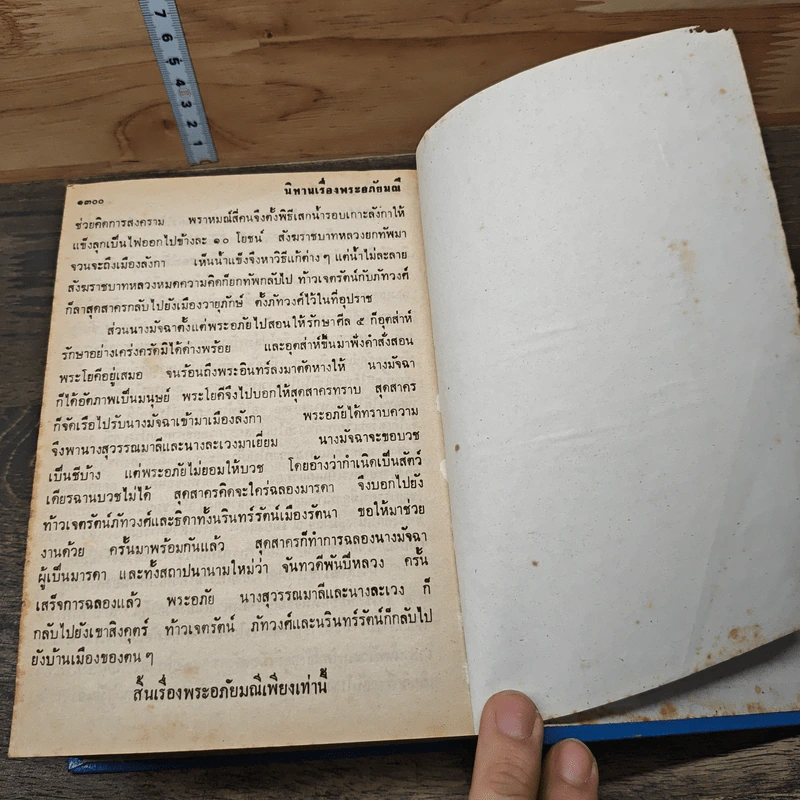 7
6
5
4
3
2
1
๑๓๐๐ นิทานเรื่องพระอภัยมณี
ช่วยคิดการสงคราม พราหมณ์สี่คนจึงตั้งพิธีเสกน้ำรอบเกาะลังกาให้
แข็งลุกเป็นไฟออกไปข้างละ ๑๐ โยชน์ สังฆราชบาทหลวงยกทัพมา
จวนจะถึงเมืองลังกา เห็นน้ำแข็งจึงหาวิธีแก้ต่าง ๆ แต่น้ำไม่ละลาย
สังฆราชบาทหลวงหมดความคิดก็ยกทัพกลับไป ท้าวเจตรัตน์กับภัทวงศ์
ก็ลาสุดสาครกลับไปยังเมืองวายุภักษ์ ตั้งภัทวงศ์ไว้ในที่อุปราช
ส่วนนางมัจฉาตั้งแต่พระอภัยไปสอนให้รักษาศีล ๕ ก็อุตส่าห์
รักษาอย่างเคร่งครัดมิได้ด่างพร้อย และอุตส่าห์ขึ้นมาฟังคำสั่งสอน
พระโยคีอยู่เสมอ จนร้อนถึงพระอินทร์ลงมาตัดหางให้ นางมัจฉา
ก็ได้อัตภาพเป็นมนุษย์ พระโยคีจึงไปบอกให้สุดสาครทราบ สุดสาคร
ก็จัดเรือไปรับนางมัจฉาเข้ามาเมืองลังกา พระอภัยได้ทราบความ
จึงพานางสุวรรณมาลีและนางละเวงมาเยี่ยม นางมัจฉาจะขอบวช
เป็นชีบ้าง แต่พระอภัยไม่ยอมให้บวช โดยอ้างว่ากำเนิดเป็นสัตว์
เดียรฉานบวชไม่ได้ สุดสาครคิดจะใคร่ฉลองมารดา จึงบอกไปยัง
ท้าวเจตรัตน์ภัทวงศ์และธิดาทั้งนรินทร์รัตน์เมืองรัตนา ขอให้มาช่วย
งานด้วย ครั้นมาพร้อมกันแล้ว สุดสาครก็ทำการฉลองนางมัจฉา
ผู้เป็นมารดา และทั้งสถาปนานามใหม่ว่า จันทวดีพันปีหลวง ครั้น
เสร็จการฉลองแล้ว พระอภัย นางสุวรรณมาลีและนางละเวง ก็
กลับไปยังเขาสิงคุตร์ ท้าวเจตรัตน์ ภัทวงศ์และนรินทร์รัตน์ก็กลับไป
ยังบ้านเมืองของตน ๆ
สิ้นเรื่องพระอภัยมณีเพียงเท่านี้